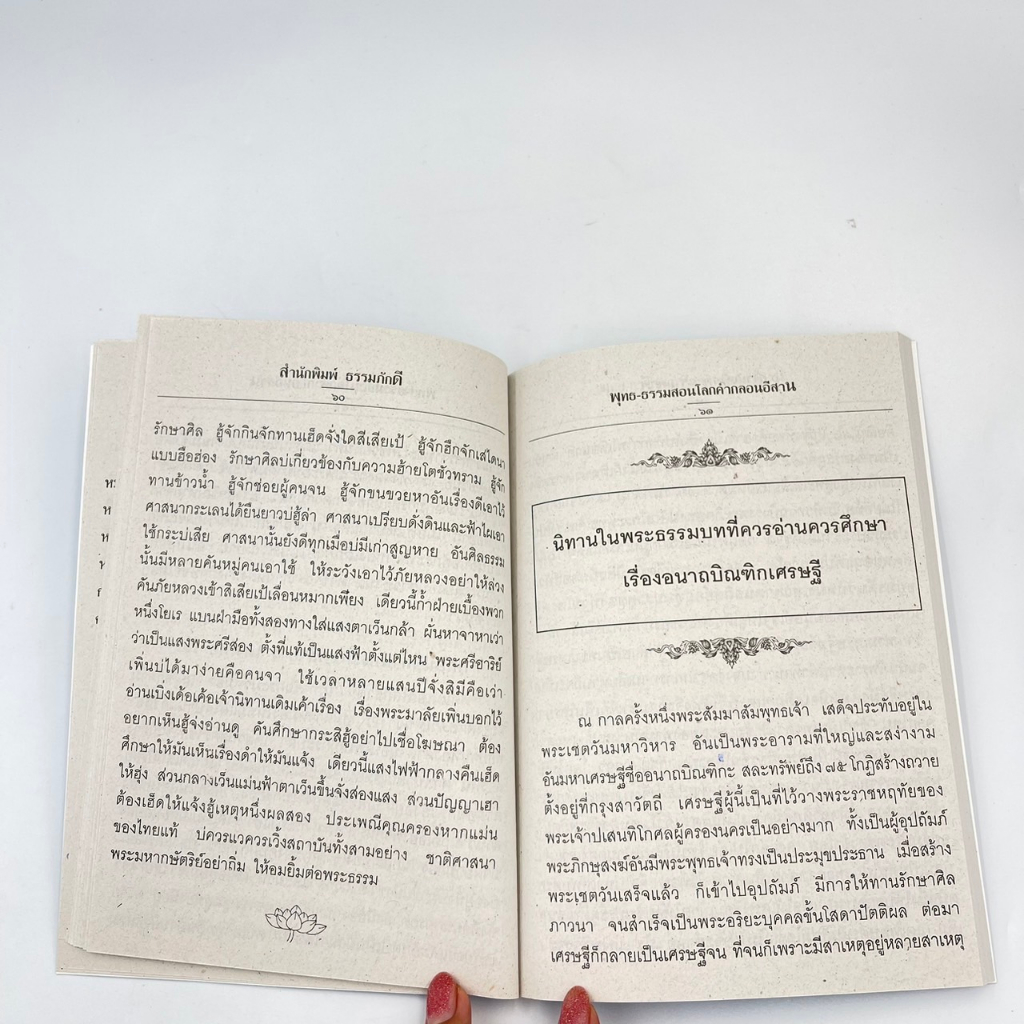 สำนักพิมพ์ ธรรมภักดี
๖๐
รักษาศิล ฮู้จักกินจักทานเฮ็ดจั่งใดสิเสียเป้ ฮู้จักฮีกจักเสไดนา
แบบฮือฮ่อง รักษาศิลบ่เกี่ยวข้องกับความฮ้ายโตชั่วทราม ฮู้จัก
ทานข้าวน้ำ ฮู้จักซ่อยผู้คนจน ฮู้จักขนขวยหาอันเรื่องดีเอาไว้
ศาสนากระเลนได้ยืนยาวบ่ฮู้ล่า ศาสนาเปรียบดั่งดินและฟ้าไผเอา
ใช้กระบ่เสีย ศาสนานั้นยังดีทุกเมื่อบ่มีเก่าสูญหาย อันศิลธรรม
นั้นมีหลายคันหมู่คนเอาใช้ ให้ระวังเอาไว้ภัยหลวงอย่าให้ล่วง
คันภัยหลวงเข้าสิเสียเป้เลื่อนหมากเพียง เดียวนี้ก้ำฝ่ายเบื้องพวก
หนึ่งโยเร แบนฝ่ามือทั้งสองทางใส่แสงตาเว็นกล้า ผั่นหาจาหาเว่า
ว่าเป็นแสงพระศรีส่อง ตั้งที่แท้เป็นแสงฟ้าตั้งแต่ไหน พระศรีอาริย์
เพิ่นบ่ได้มาง่ายคือคนจา ใช้เวลาหลายแสนปีจั่งสิมีคือเว่า
อ่านเบิ่งเด้อเค้อเจ้านิทานเดิมเค้าเรื่อง เรื่องพระมาลัยเพิ่นบอกไว้
อยากเห็นฮู้จ่งอ่านดู คันศึกษากระสิฮู้อย่าไปเชื่อโฆษณา ต้อง
ศึกษาให้มันเห็นเรื่องดำให้มันแจ้ง เดียวนี้แสงไฟฟ้ากลางคืนเฮ็ด
ให้ฮุ่ง ส่วนกลางเว็นแม่นฟ้าตาเว็นขึ้นจั่งส่องแสง ส่วนปัญญาเฮา
ต้องเฮ็ดให้แจ้งฮู้เหตุหนึ่งผลสอง ประเพณีคุณครองหากแม่น
ของไทยแท้ บ่ควรแวควรเวิ้งสถาบันทั้งสามอย่าง ชาติศาสนา
พระมหากษัตริย์อย่าถิ่ม ให้อมยิ้มต่อพระธรรม
พุทธ-ธรรมสอนโลกคำกลอนอีสาน
๖๑
นิทานในพระธรรมบทที่ควรอ่านควรศึกษา
เรื่องอนาถบิณฑิกเศรษฐี
ณ กาลครั้งหนึ่งพระสัมมาสัมพุทธเจ้า เสด็จประทับอยู่ใน
พระเชตวันมหาวิหาร อันเป็นพระอารามที่ใหญ่และสง่างาม
อันมหาเศรษฐีชื่ออนาถบิณฑิกะ สละทรัพย์ถึง ๗๕ โกฏิสร้างถวาย
ตั้งอยู่ที่กรุงสาวัตถี เศรษฐีผู้นี้เป็นที่ไว้วางพระราชหฤทัยของ
พระเจ้าปเสนทิโกศลผู้ครองนครเป็นอย่างมาก ทั้งเป็นผู้อุปถัมภ์
พระภิกษุสงฆ์อันมีพระพุทธเจ้าทรงเป็นประมุขประธาน เมื่อสร้าง
พระเชตวันเสร็จแล้ว ก็เข้าไปอุปถัมภ์ มีการให้ทานรักษาศิล
ภาวนา จนสำเร็จเป็นพระอริยะบุคคลขั้นโสดาปัตติผล ต่อมา
เศรษฐีก็กลายเป็นเศรษฐีจน ที่จนก็เพราะมีสาเหตุอยู่หลายสาเหตุ